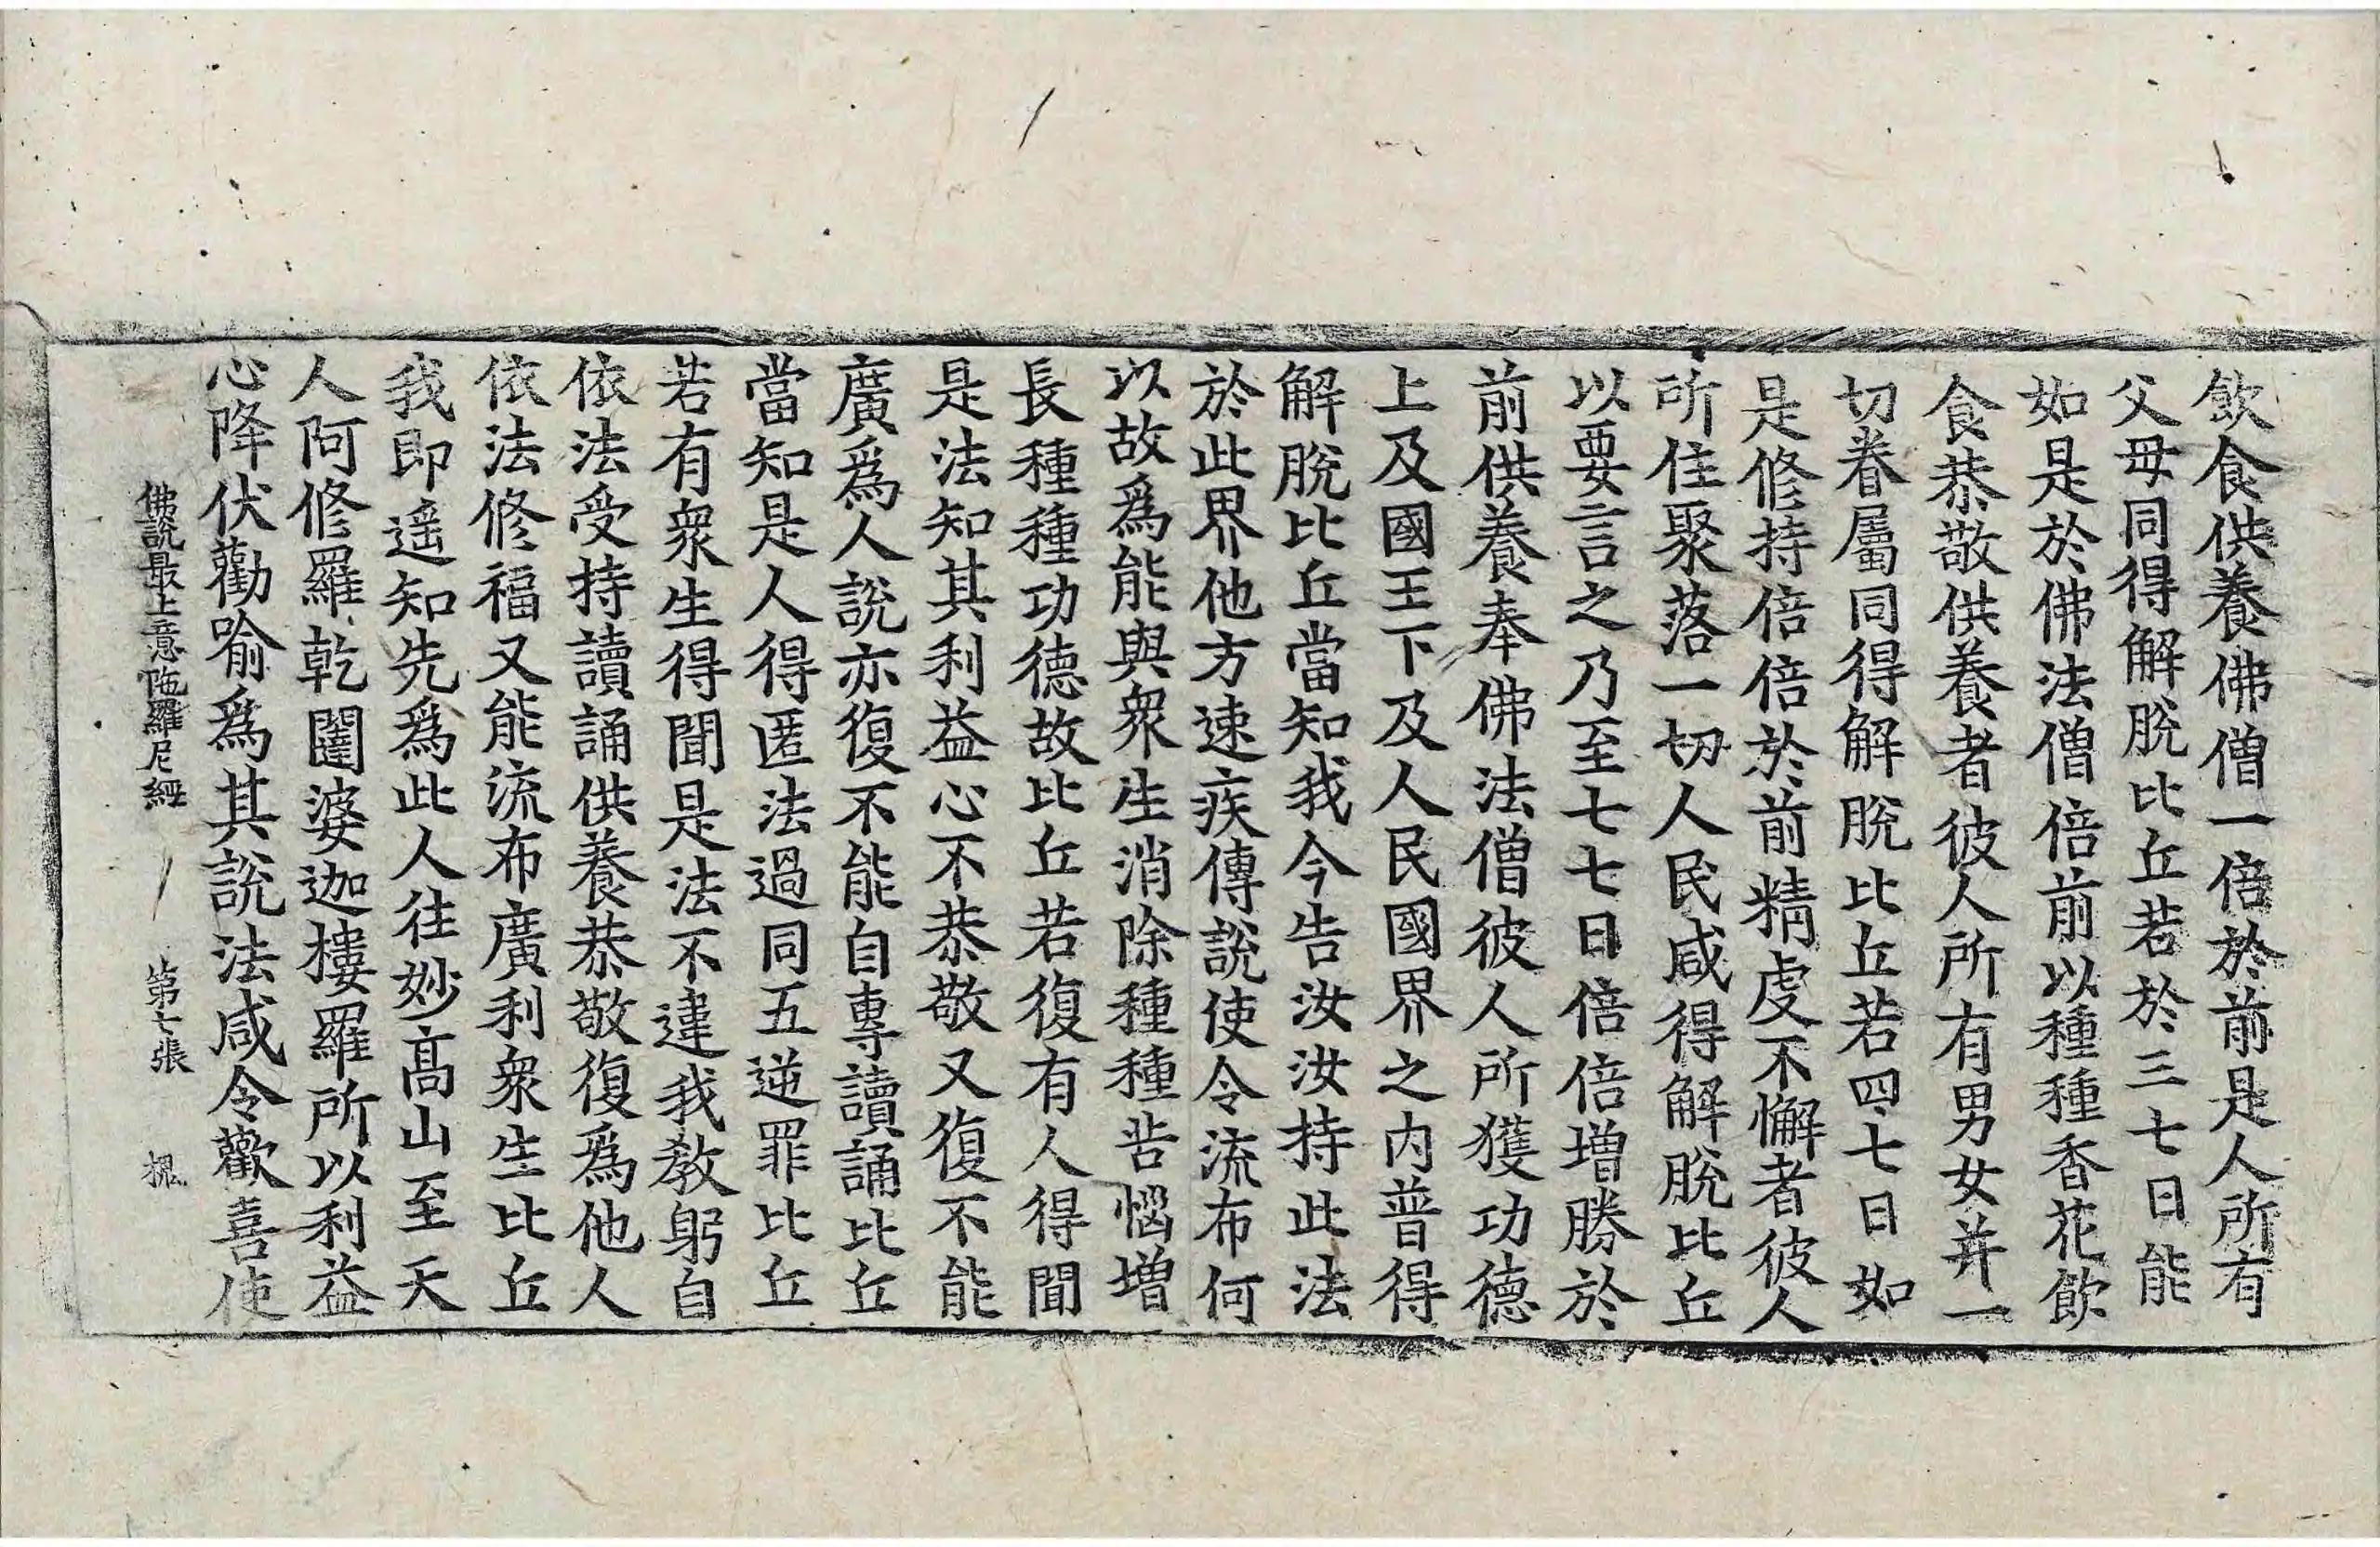 飲食供養佛僧一倍於前是人所有
父母同得解脫比丘若於三七日能
如是於佛法僧倍前以種種香花飲
食恭敬供養者彼人所有男女并一
切眷屬同得解脫比丘若四七日如
是修持倍倍於前精虔不懈者彼人
所住聚落一切人民咸得解脫比丘
以要言之乃至七七日倍倍增勝於
前供養奉佛法僧彼人所獲功德
上及國王下及人民國界之內普得
解脫比丘當知我今告汝汝持此法
於此界他方速疾傳說使令流布何
以故爲能與衆生消除種種苦惱增
長種種功德故比丘若復有人得聞
是法知其利益心不恭敬又復不能
廣爲人說亦復不能自專讀誦比丘
當知是人得匿法過同五逆罪比丘
若有衆生得聞是法不違我教躬自
依法受持讀誦供養恭敬復爲他人
依法修福又能流布廣利衆生比丘
我即遥知先爲此人往妙高山至天
人阿修羅乾闥婆迦樓羅所以利益
心降伏勸喻爲其說法咸令歡喜使
佛說最上意陁羅尼經 第七張